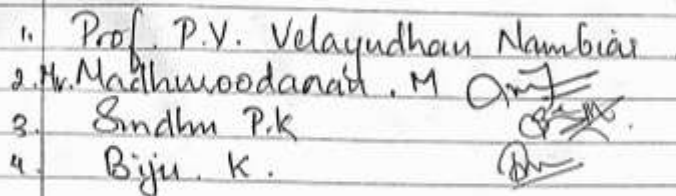 1. Prof. P.V. Velayudhan Nambiar
2. Mr. Madhusoodanan . M
3. Sindhu P.K
4. Biju. K.